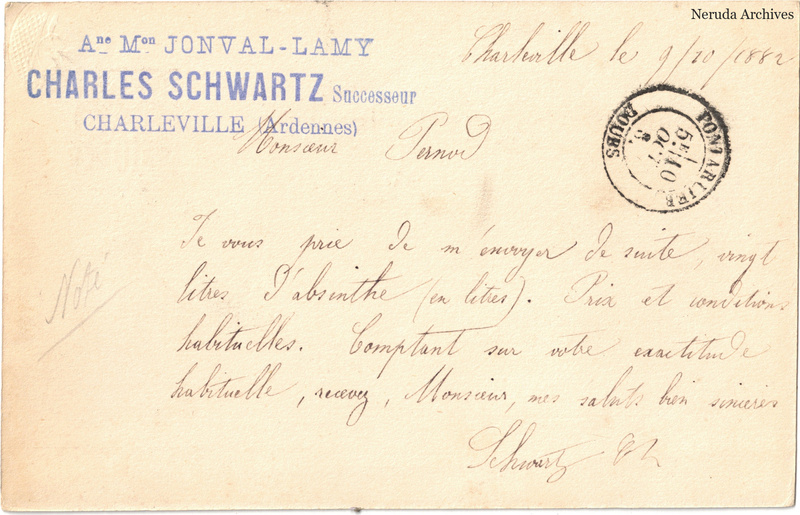 Neruda Archives
Ane Mon JONVAL-LAMY
CHARLES SCHWARTZ Successeur
CHARLEVILLE (Ardennes)
Charleville le 9/10/1882
PONTARLIER
5E/10
OCT
DOUBS
Monsieur Pernod
Je vous prie de m'envoyer de suite, vingt
litres d'absinthe (en litres). Prix et conditions
habituelles. Comptant sur votre exactitude
habituelle, recevez, Monsieur, mes saluts bien sincères
Schwartz Ch
Noté